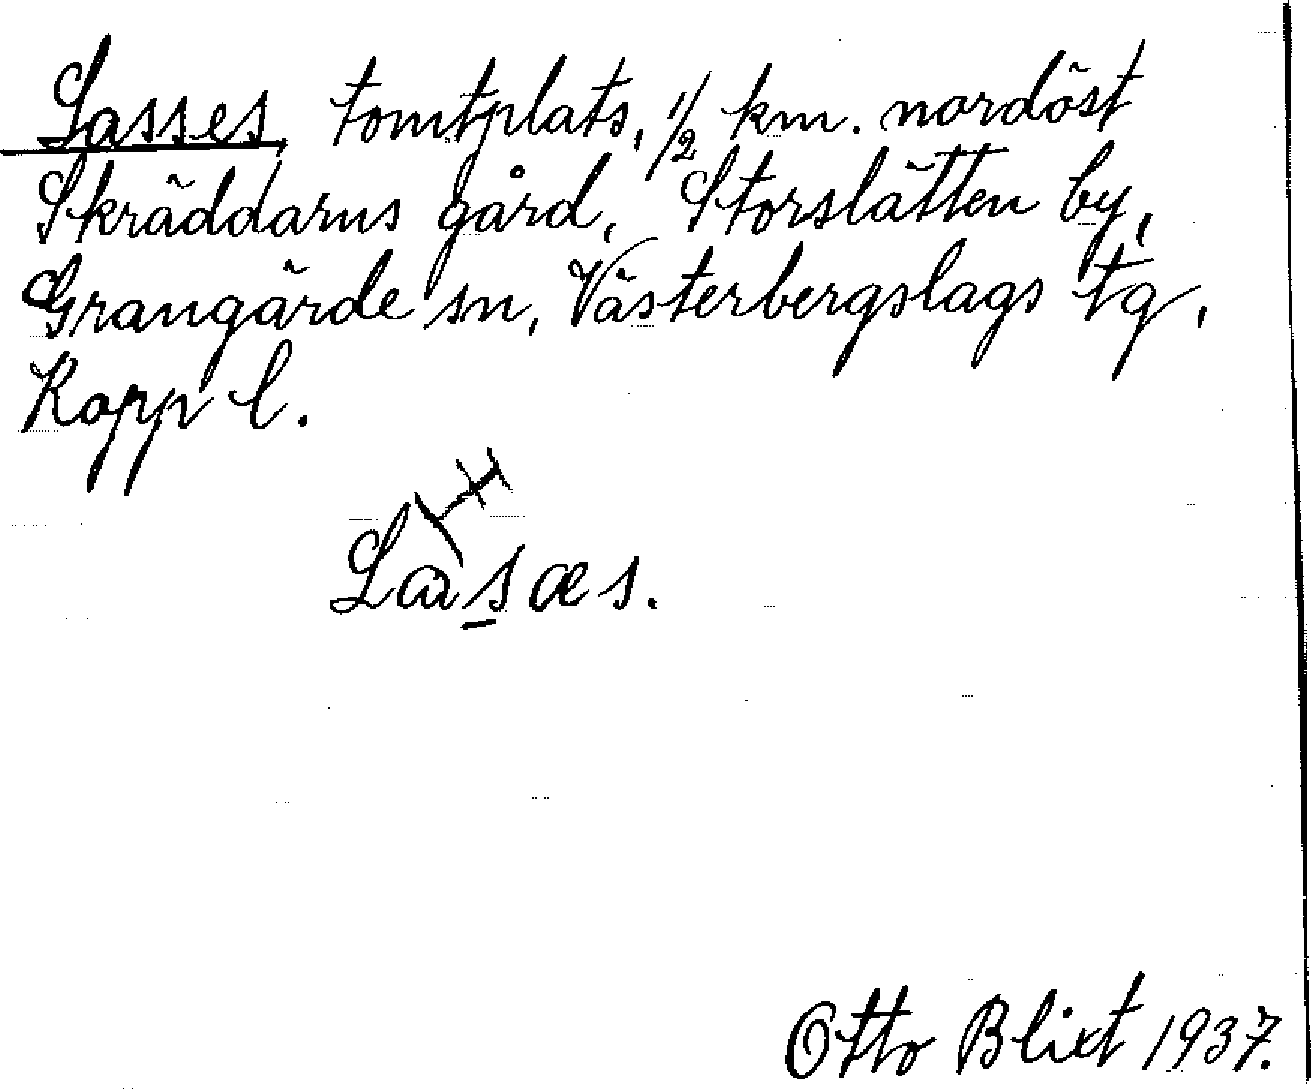 Lasses, tomtplats, 1/2 km. nordöst
Skräddarns gård, Storslätten by,
Grangärde sn, Västerbergslags tg,
Kopp l.
Lasæs.
Otto Blixt 1937.